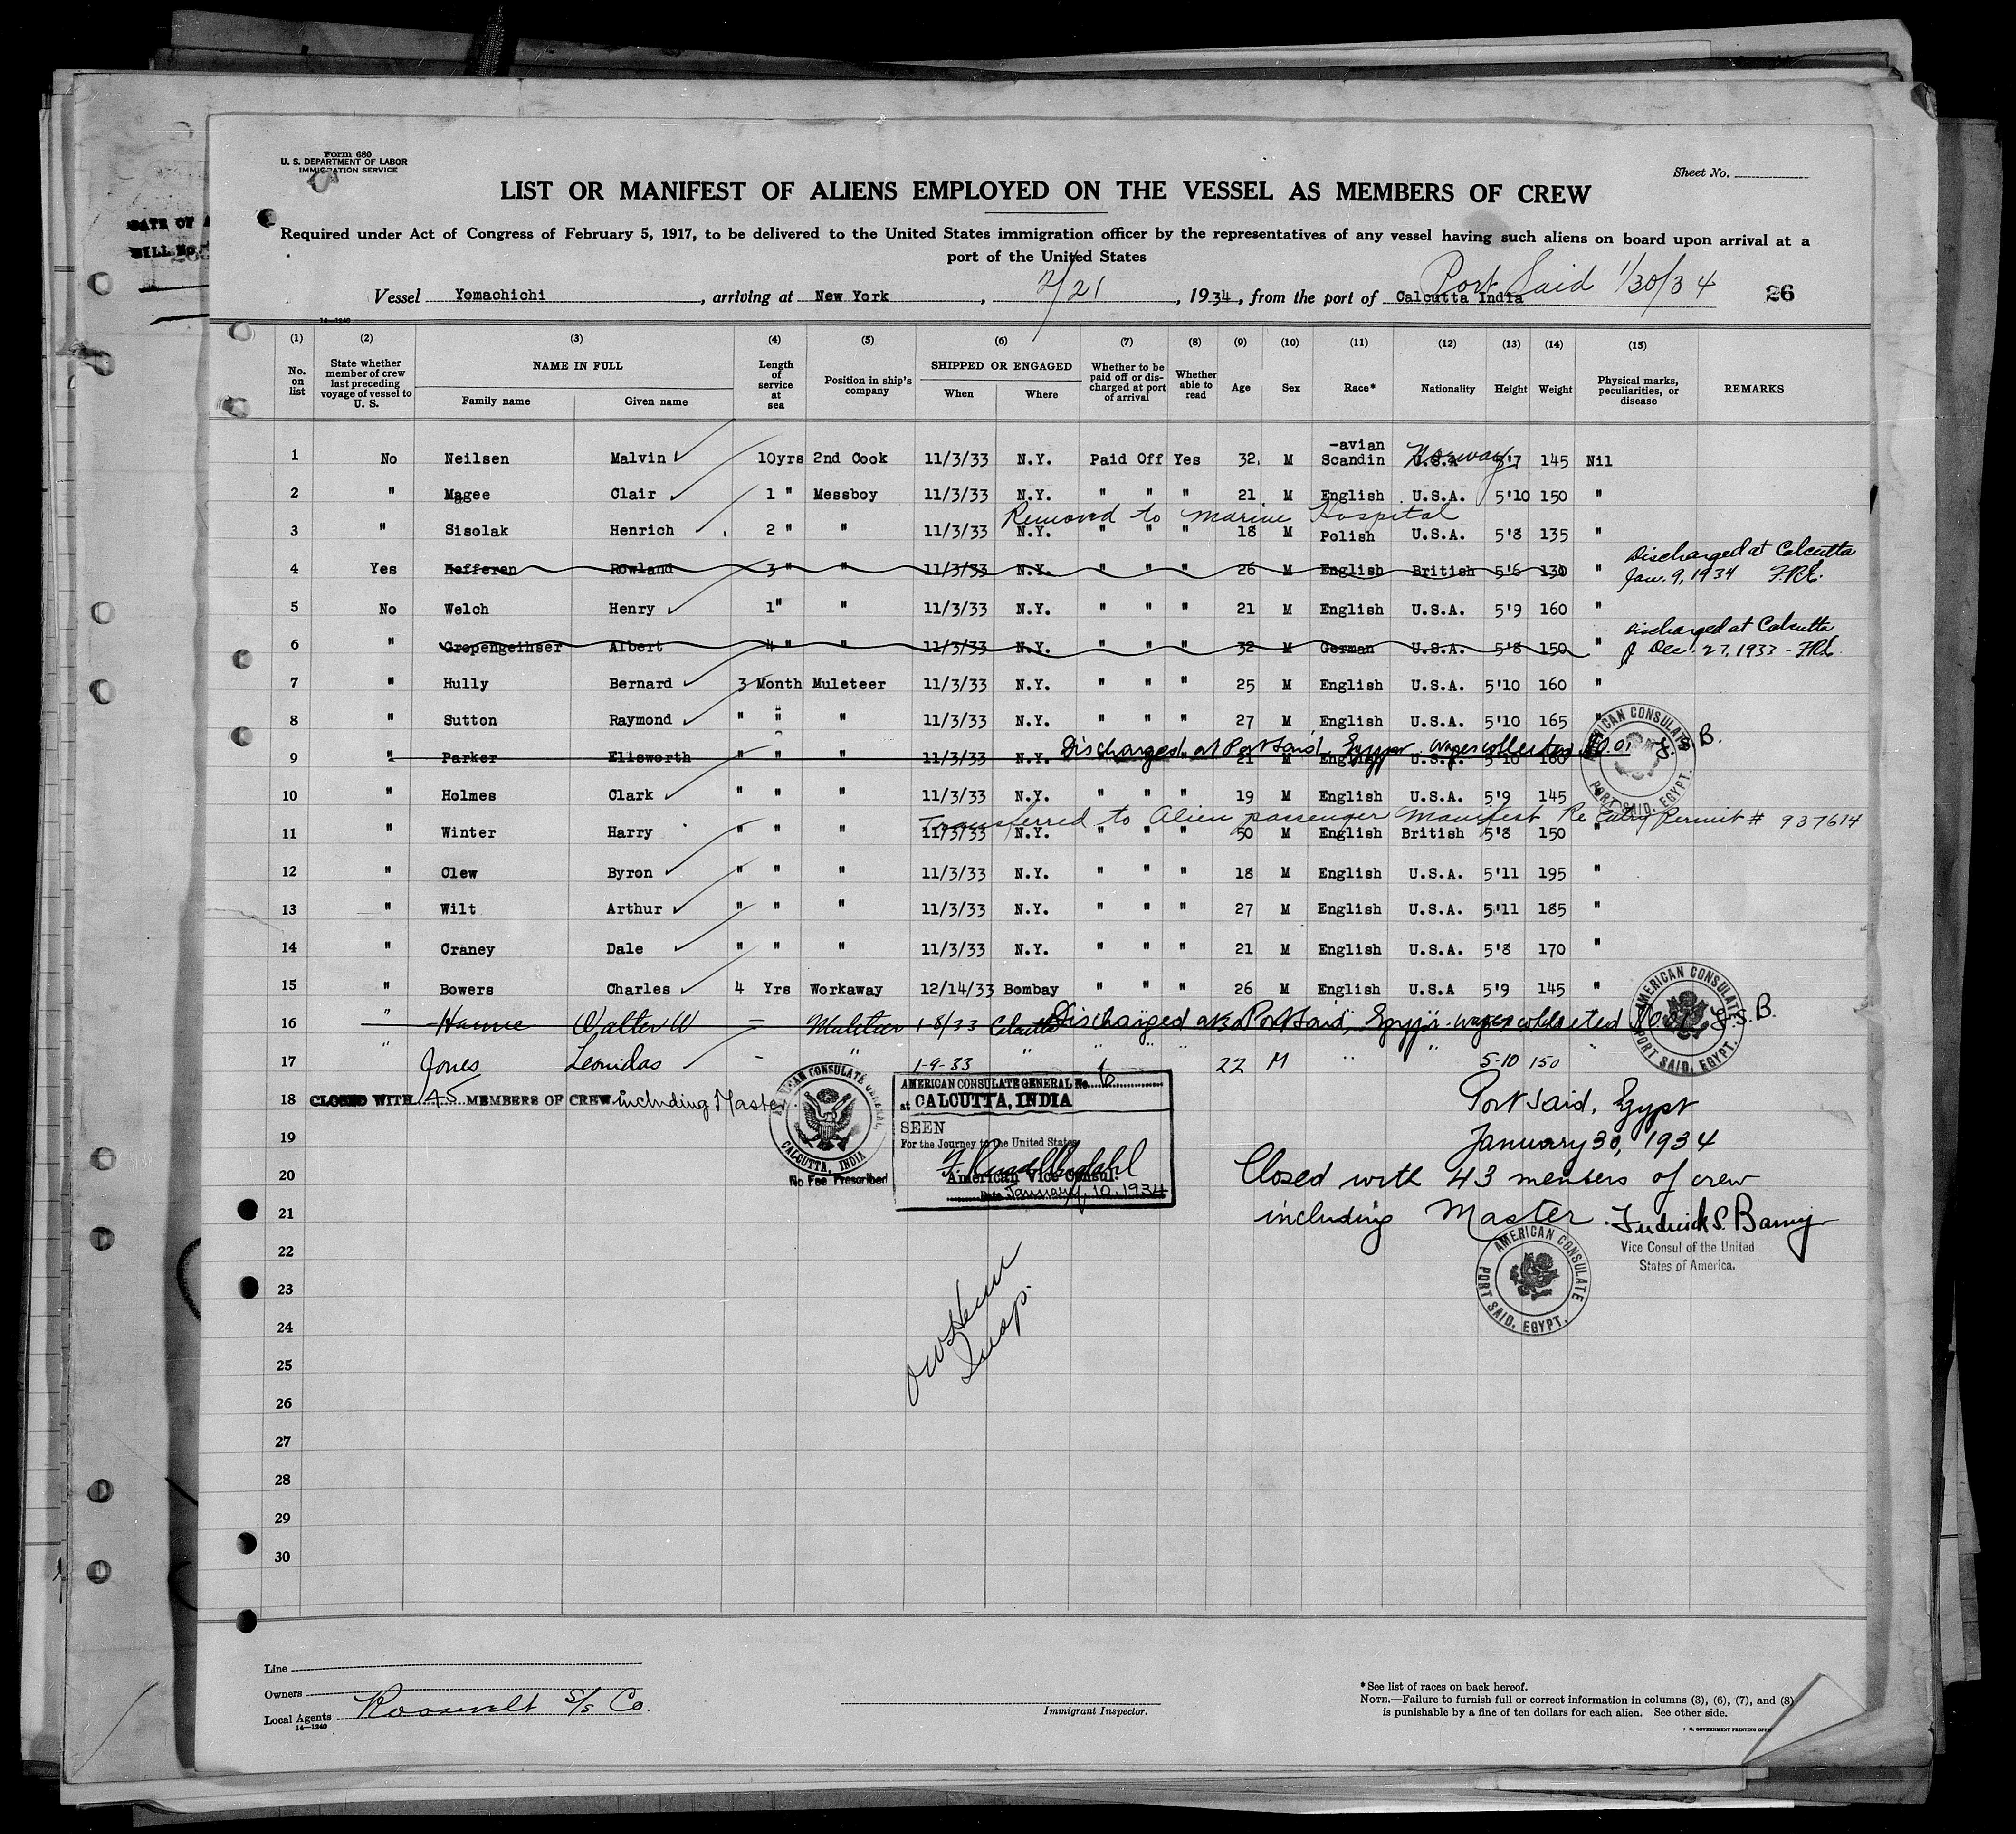 Form 680
U. S. DEPARTMENT OF LABOR
IMMIGRATION SERVICE
Sheet No.
LIST OR MANIFEST OF ALIENS EMPLOYED ON THE VESSEL AS MEMBERS OF CREW
DATE OF
BILL No.
Required under Act of Congress of February 5, 1917, to be delivered to the United States immigration officer by the representatives of any vessel having such aliens on board upon arrival at a
port of the United States
Port Said 1/30/34
Vessel Yomachichi, arriving at New York, 2/21, 1934, from the port of Calcutta India 26
14—1240
(1) (2) (3) (4) (5) (6) (7) (8) (9) (10) (11) (12) (13) (14) (15)
No. on list State whether member of crew last preceding voyage of vessel to U. S. NAME IN FULL Family name Given name Length of service at sea Position in ship's company SHIPPED OR ENGAGED When Where Whether to be paid off or discharged at port of arrival Whether able to read Age Sex Race* Nationality Height Weight Physical marks, peculiarities, or disease REMARKS
-avian
1 No Neilsen Malvin 10yrs 2nd Cook 11/3/33 N.Y. Paid Off Yes 32 M Scandin U.S.A Norway 5'7 145 Nil
2 " Magee Clair 1 " Messboy 11/3/33 N.Y. " " " 21 M English U.S.A. 5'10 150 "
Removed to Marine Hospital
3 " Sisolak Henrich 2 " " 11/3/33 N.Y. " " " 18 M Polish U.S.A. 5'8 135 "
Discharged at Calcutta
4 Yes Hefferen Rowland 3 " " 11/3/33 N.Y. " " " 26 M English British 5'6 130 " Jan. 9, 1934
5 No Welch Henry 1" " 11/3/33 N.Y. " " " 21 M English U.S.A. 5'9 160 "
Discharged at Calcutta
6 " Gropengeihser Albert 4 " " 11/3/33 N.Y. " " " 32 M German U.S.A. 5'8 150 " Dec. 27, 1933
7 " Hully Bernard 3 Month Muleteer 11/3/33 N.Y. " " " 25 M English U.S.A. 5'10 160 "
8 " Sutton Raymond " " " 11/3/33 N.Y. " " " 27 M English U.S.A. 5'10 165 "
Discharged at Port Said, Egypt. wages collected
9 " Parker Ellsworth " " " 11/3/33 N.Y. " 21 M English U.S.A. 5'10 160
AMERICAN CONSULATE PORT SAID, EGYPT.
10 " Holmes Clark " " " 11/3/33 N.Y. " " " 19 M English U.S.A. 5'9 145 "
Transferred to Alien passenger Manifest Re Entry Permit # 937614
11 " Winter Harry " " " 11/3/33 N.Y. " " " 50 M English British 5'8 150 "
12 " Clew Byron " " " 11/3/33 N.Y. " " " 18 M English U.S.A. 5'11 195 "
13 " Wilt Arthur " " " 11/3/33 N.Y. " " " 27 M English U.S.A. 5'11 185 "
14 " Craney Dale " " " 11/3/33 N.Y. " " " 21 M English U.S.A. 5'8 170 "
15 " Bowers Charles 4 Yrs Workaway 12/14/33 Bombay " " " 26 M English U.S.A 5'9 145 "
16 " Walter W — Muleteer 1-8/33 Calcutta Discharged at Port Said, Egypt. wages collected F.S.B.
AMERICAN CONSULATE PORT SAID, EGYPT.
17 " Jones Leonidas - " 1-9-33 " " " " 22 M " " 5-10 150 "
18 CLOSED WITH 45 MEMBERS OF CREW including Master
AMERICAN CONSULATE GENERAL CALCUTTA, INDIA
No Fee Prescribed
AMERICAN CONSULATE GENERAL No. 6
at CALCUTTA, INDIA
SEEN
For the Journey to the United States
American Vice Consul.
Date January 10, 1934
Port Said, Egypt
January 30, 1934
Closed with 43 members of crew
including Master. Frederick S. Barny
Vice Consul of the United
States of America.
AMERICAN CONSULATE PORT SAID, EGYPT.
19
20
21
22
23
24
25
26
27
28
29
30
Insp.
Line
Owners
Local Agents Roosevelt S/S Co.
14—1240
Immigrant Inspector.
*See list of races on back hereof.
NOTE.—Failure to furnish full or correct information in columns (3), (6), (7), and (8)
is punishable by a fine of ten dollars for each alien. See other side.